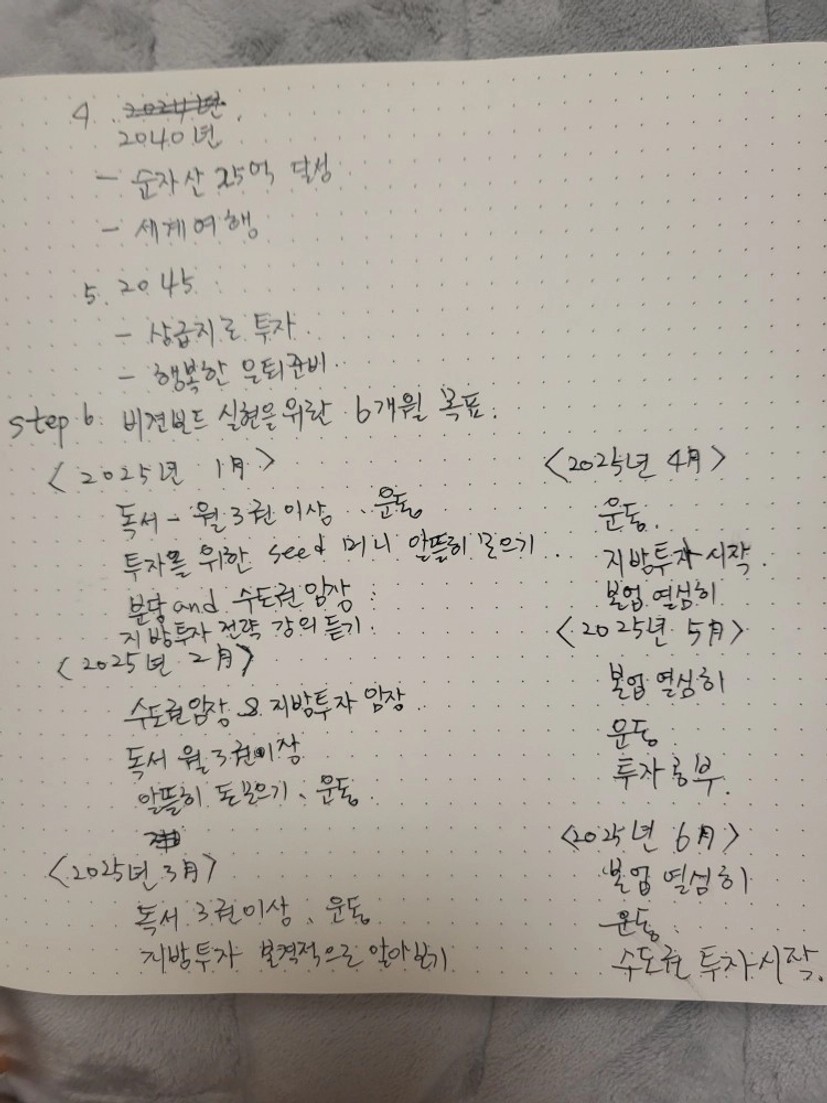 4. 2024년
2040년
- 순자산 25억 달성
- 세계여행
5. 2045
- 상급지로 투자.
- 행복한 은퇴준비.
step 6. 비젼보드 실현을 위한 6개월 목표.
<2025년 1月>
독서 - 월 3권 이상, 운동
투자를 위한 seed 머니 알뜰히 모으기.
분당 and 수도권 임장
지방투자 전략 강의 듣기.
<2025년 2月>
수도권임장 & 지방투자 임장
독서 월 3권이상
알뜰히 돈모으기, 운동
<2025년 3月>
독서 3권이상, 운동
지방투자 본격적으로 알아보기
<2025년 4月>
운동.
지방투자 시작.
본업 열심히
<2025년 5月>
본업 열심히
운동
투자공부.
<2025년 6月>
본업 열심히
운동.
수도권 투자시작.